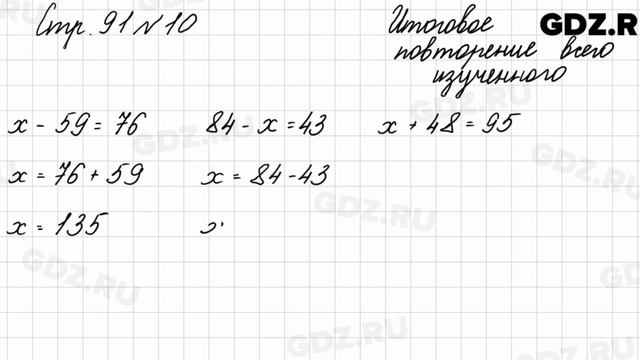 Стр. 91 № 10
Итоговое
повторение всего
изученного
GDZ.R
x - 59 = 76
84 - x = 43
x + 48 = 95
x = 76 + 59
x = 84 - 43
x = 135
GDZ.RU
GDZ.RU
GDZ.RU
GDZ.RU
GDZ.RU
GDZ.RU